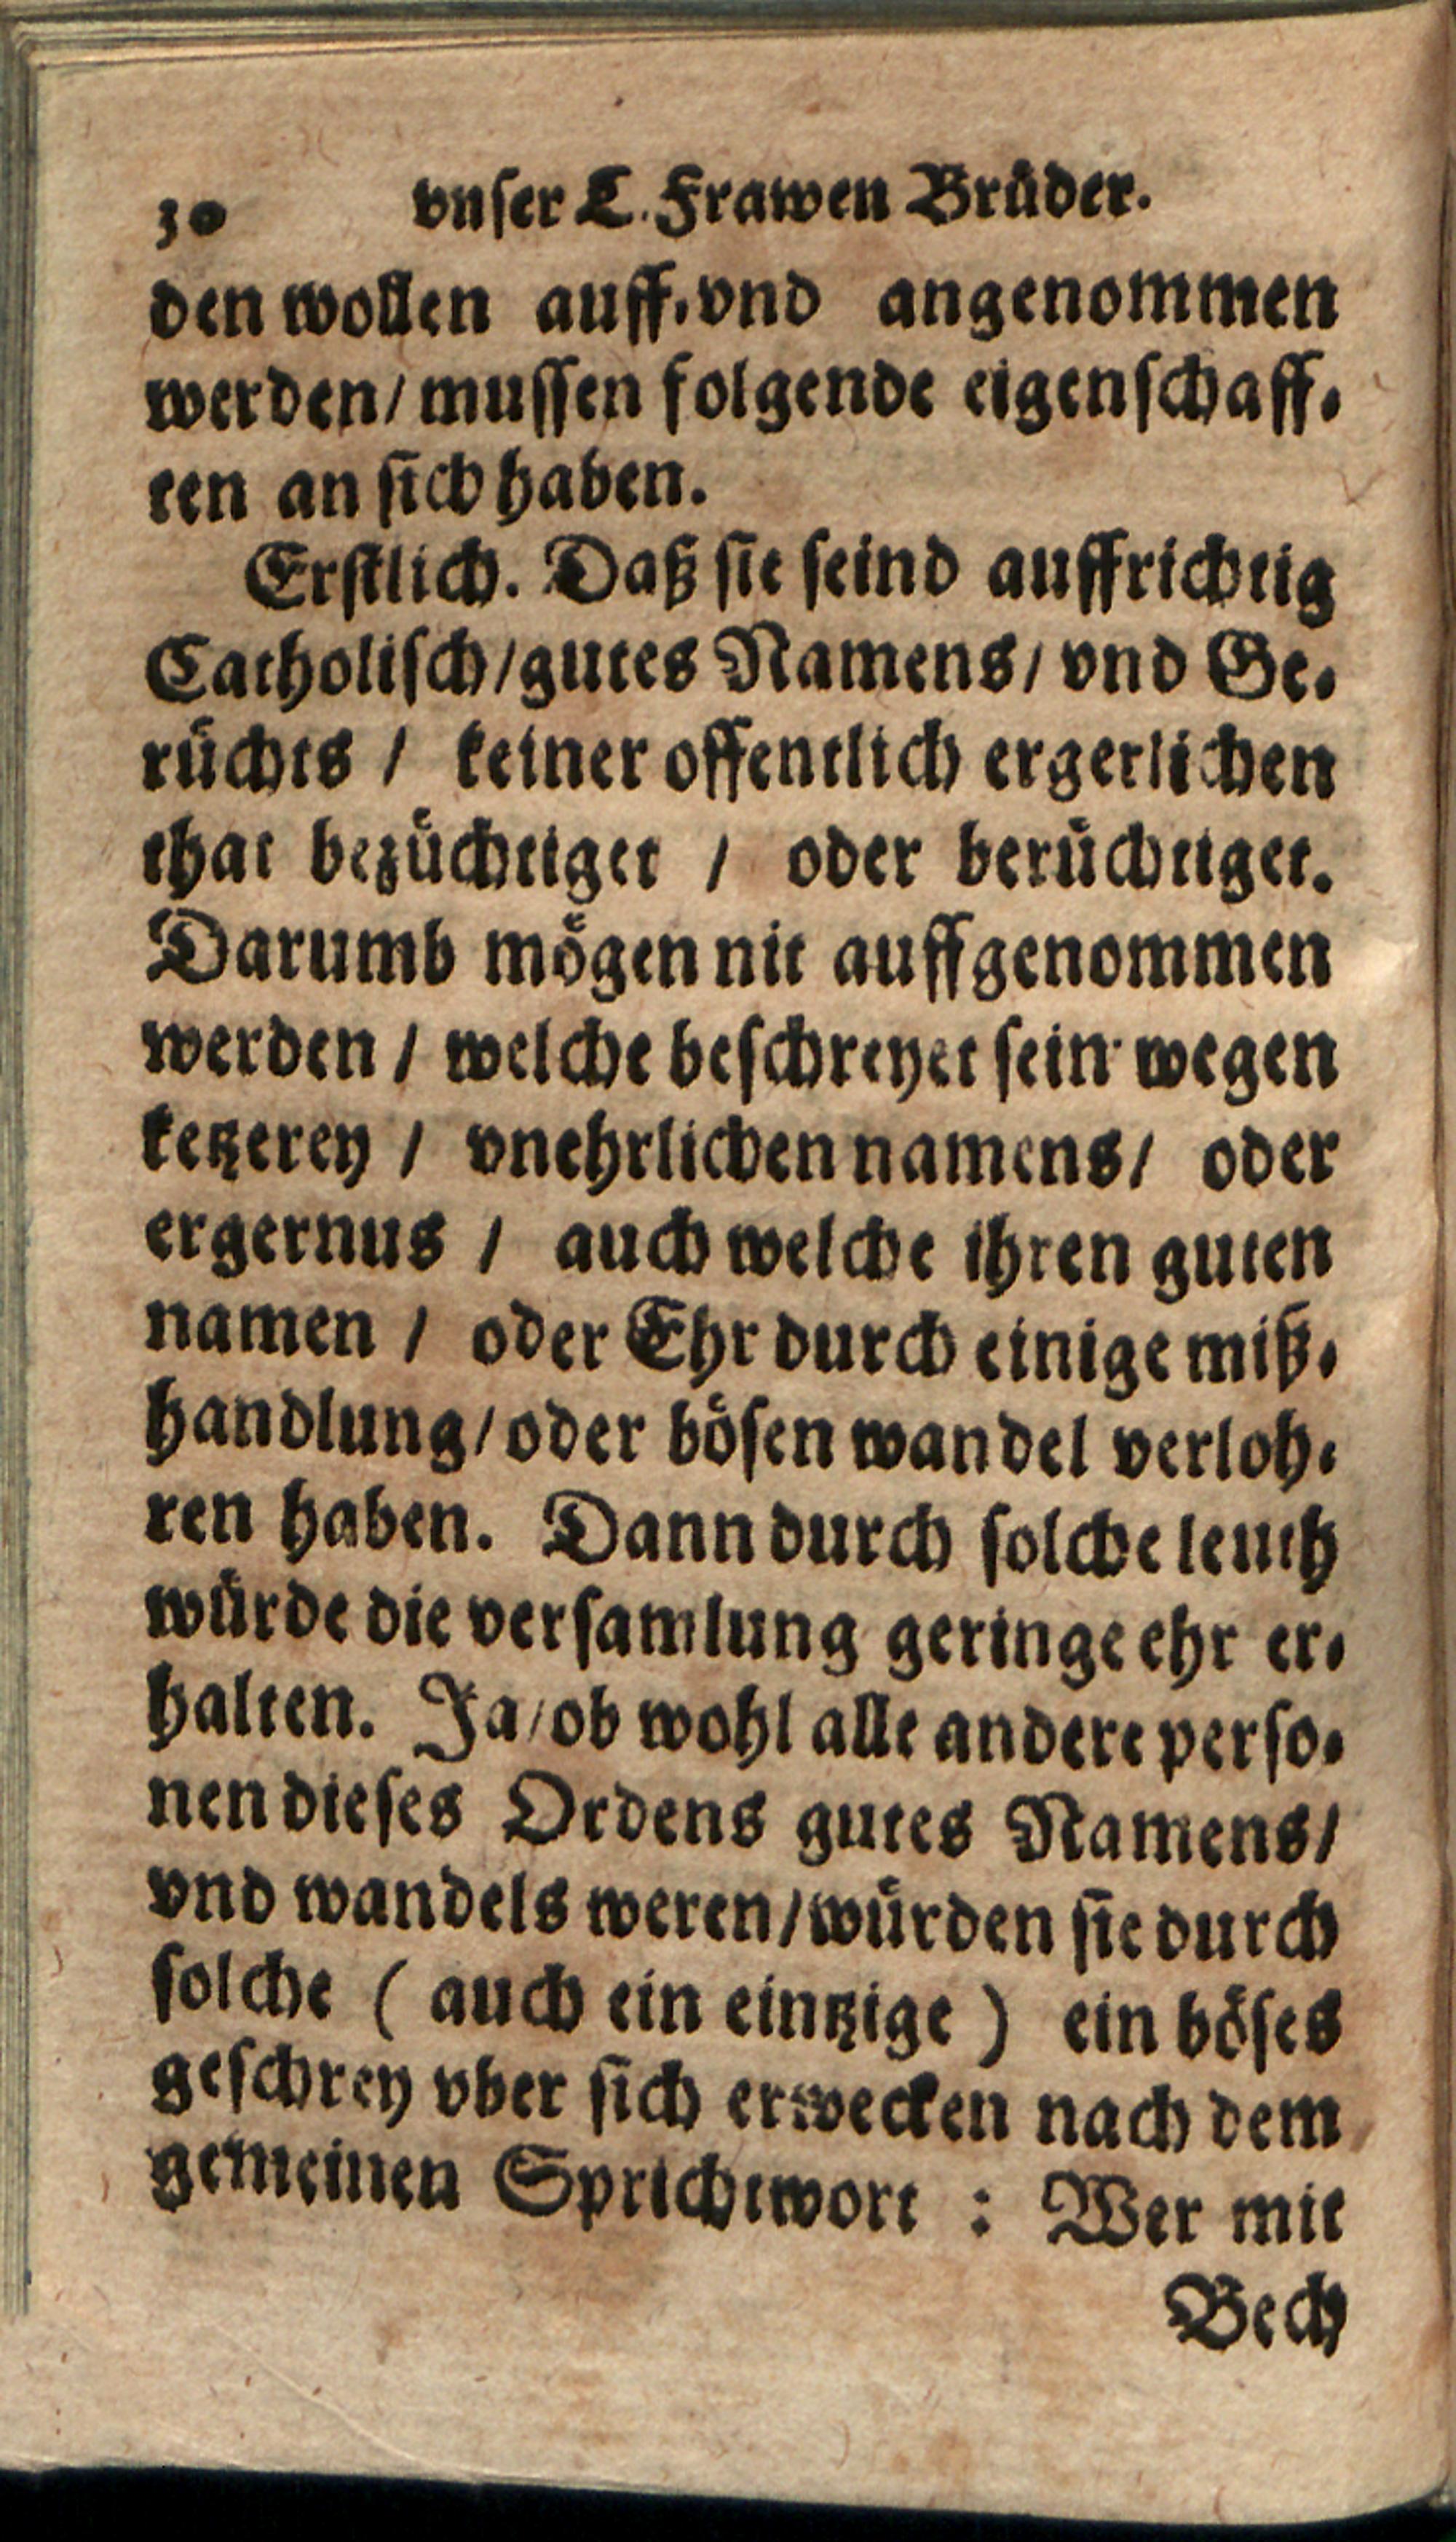 30 vnser L. Frawen Brüder.
den wollen auff-vnd angenommen
werden/ mussen folgende eigenschaff-
ten an sich haben.
Erstlich. Daß sie seind auffrichtig
Catholisch/gutes Namens/ vnd Ge-
rüchts / keiner offentlich ergerlichen
that bezüchtiget / oder berüchtiget.
Darumb mögen nit auffgenommen
werden / welche beschreyet sein wegen
ketzerey / vnehrlichen namens/ oder
ergernus / auch welche ihren guten
namen / oder Ehr durch einige miß-
handlung/oder bösen wandel verloh-
ren haben. Dann durch solche leuth
würde die versamlung geringe ehr er-
halten. Ja/ob wohl alle andere perso-
nen dieses Ordens gutes Namens/
vnd wandels weren/würden sie durch
solche ( auch ein eintzige ) ein böses
geschrey vber sich erwecken nach dem
gemeinen Sprichtwort : Wer mit
Bech